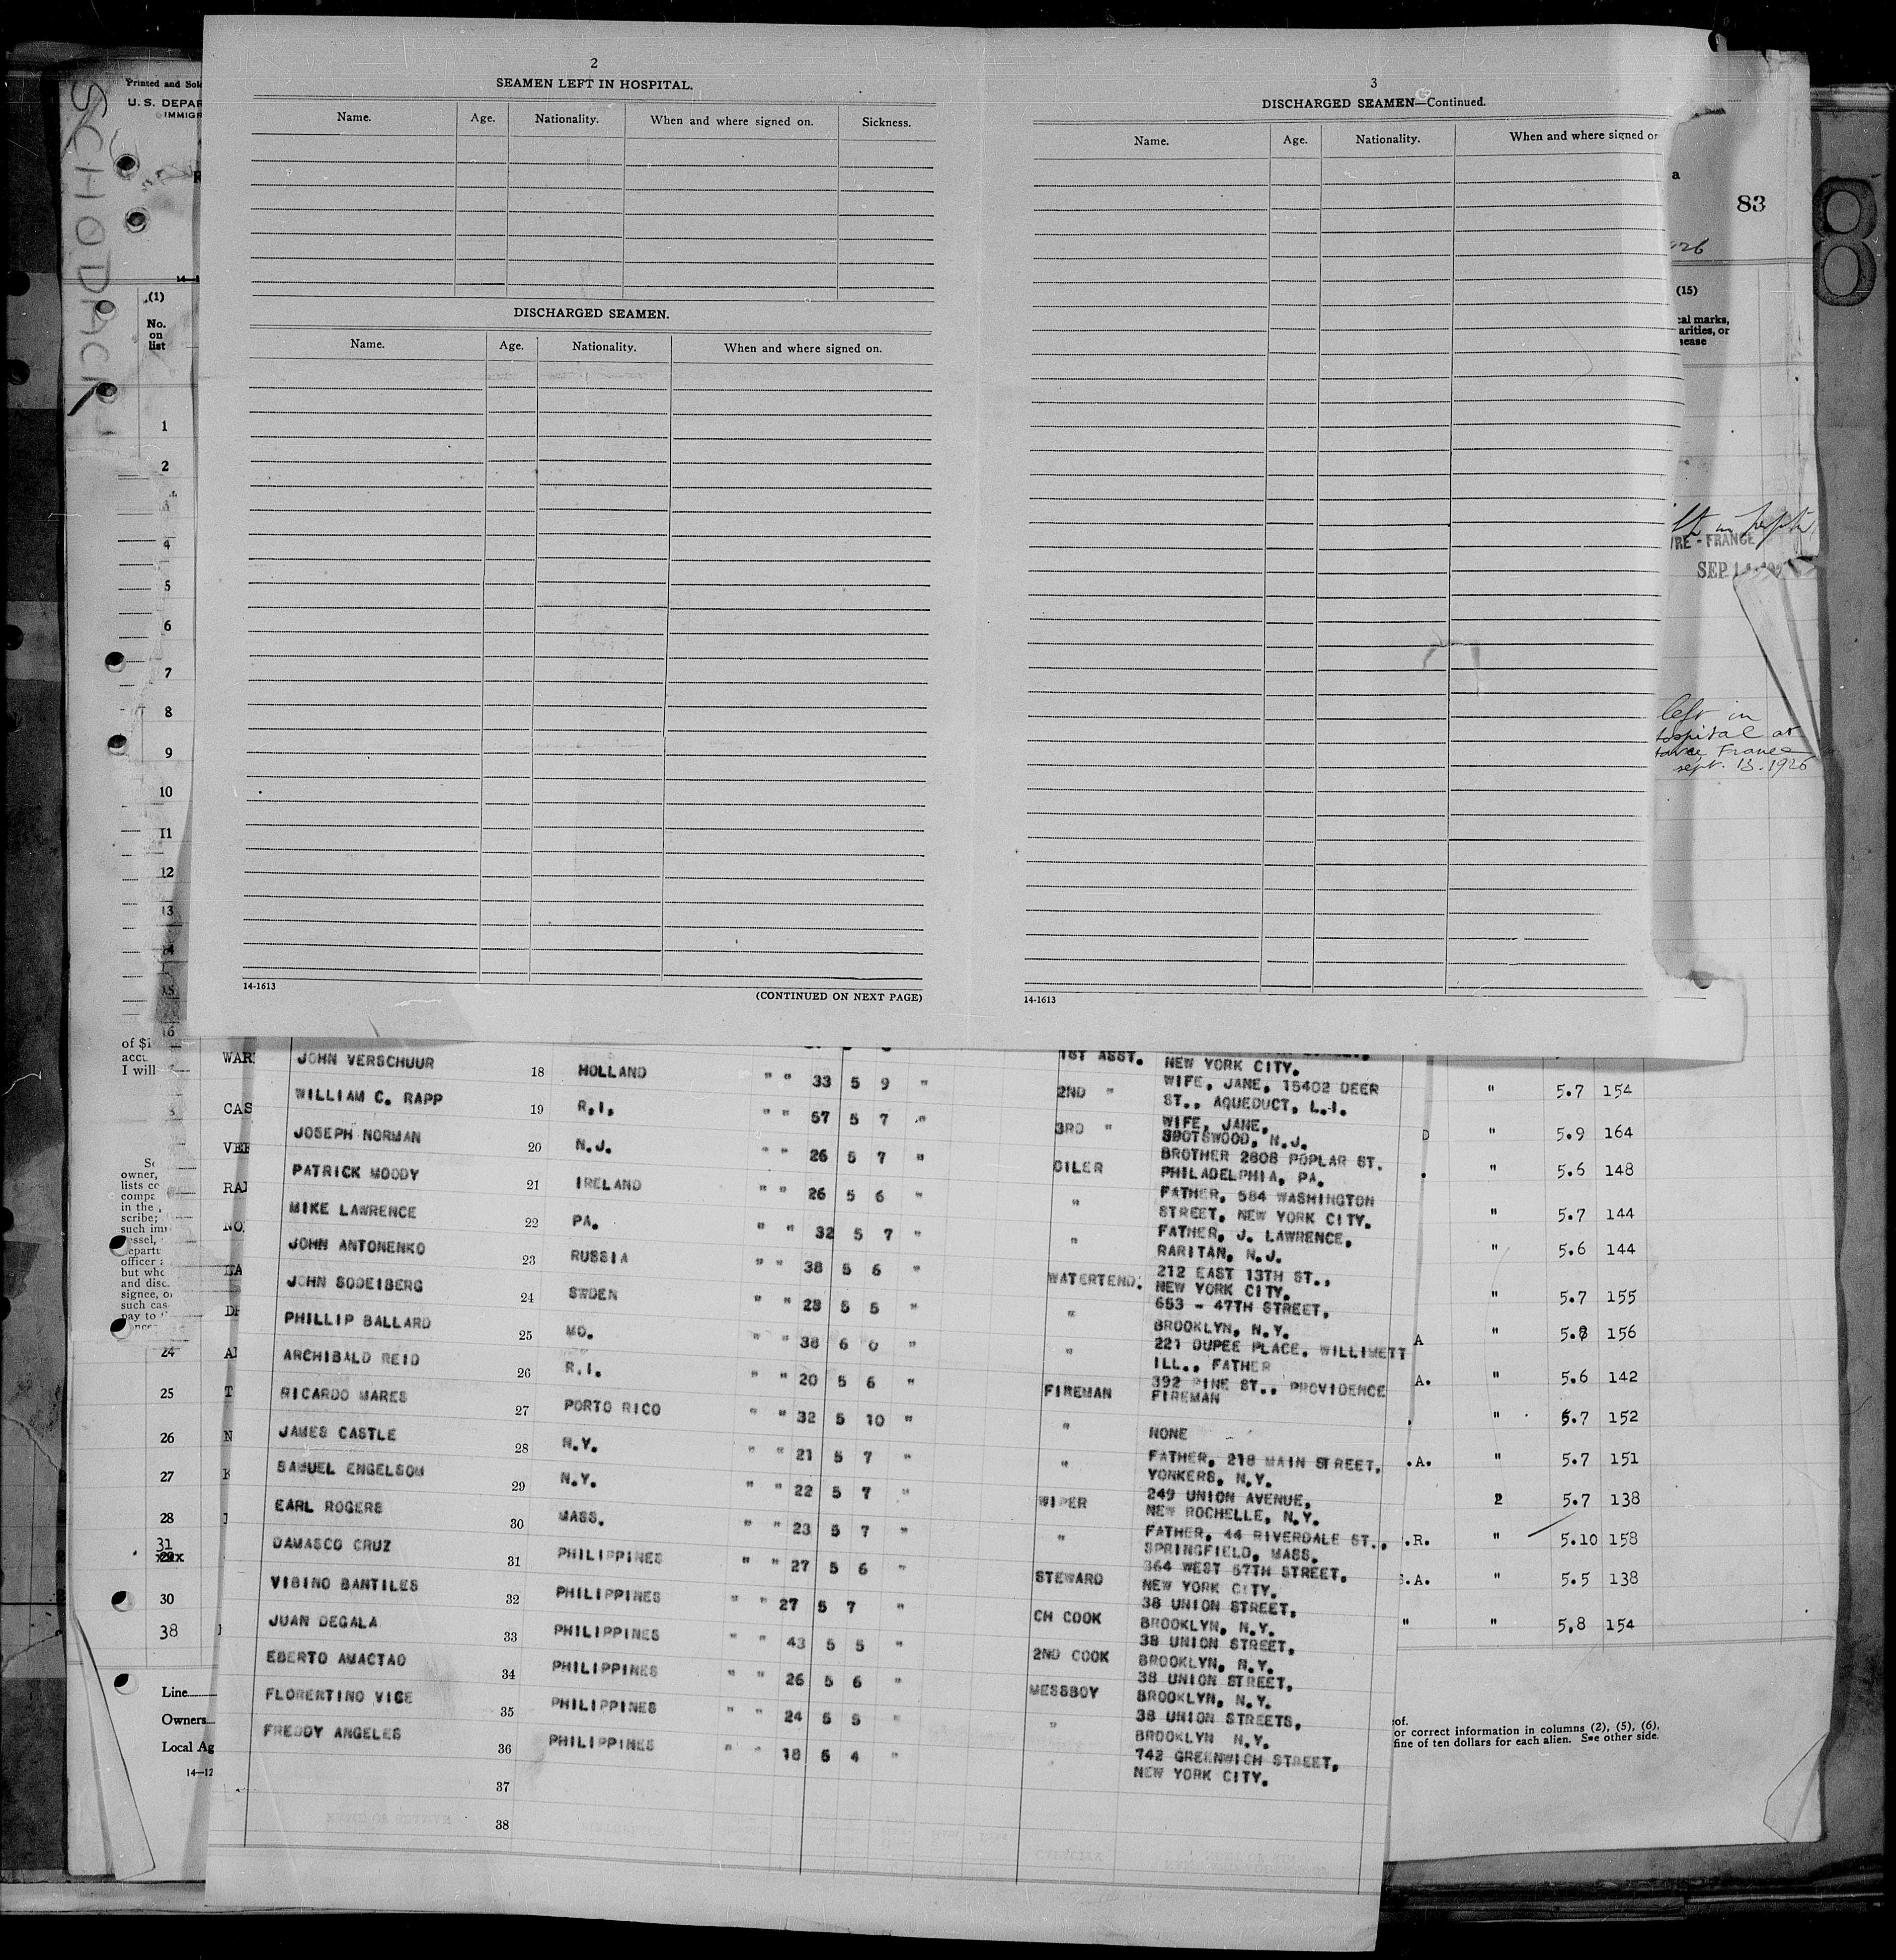 SCHODACK
Printed and Sol
U. S. DEPAR
IMMIGR
2
SEAMEN LEFT IN HOSPITAL.
Name. Age. Nationality. When and where signed on. Sickness.
DISCHARGED SEAMEN.
Name. Age. Nationality. When and where signed on.
14-1613
(CONTINUED ON NEXT PAGE)
3
DISCHARGED SEAMEN—Continued.
Name. Age. Nationality. When and where signed or
14-1613
83
(15)
cal marks,
arities, or
sease
RE - FRANCE
SEP
left in
hospital at
France
sept. 13. 1926
(1)
No.
on
list
1
2
3
4
5
6
7
8
9
10
11
12
13
14
15
16
of $1
acct
I will
owner,
lists co
compa
in the
scribe;
such imm
essel,
epart
officer
but who
and disc
signee, o
such cas
pay to
24
25
26
27
28
31
30
38
Line
Owners
Local Ag
14—12
WAR
CAS
VER
RAP
NO
JOHN VERSCHUUR 18 HOLLAND " " 33 5 9 " 1ST ASST. NEW YORK CITY.
WILLIAM C. RAPP 19 R.I. " " 57 5 7 " 2ND " WIFE, JANE, 15402 DEER
ST., AQUEDUCT, L.I.
JOSEPH NORMAN 20 N.J. " " 26 5 7 " 3RD " WIFE, JANE,
SPOTSWOOD, N.J.
PATRICK MOODY 21 IRELAND " " 26 5 6 " OILER BROTHER 2808 POPLAR ST.
PHILADELPHIA, PA.
MIKE LAWRENCE 22 PA. " " 32 5 7 " " FATHER, 584 WASHINGTON
STREET, NEW YORK CITY.
JOHN ANTONENKO 23 RUSSIA " " 38 5 6 " " FATHER, J. LAWRENCE,
RARITAN, N.J.
JOHN SODEIBERG 24 SWDEN " " 28 5 5 " WATERTEND. 212 EAST 13TH ST.,
NEW YORK CITY.
PHILLIP BALLARD 25 MO. " " 38 6 0 " " 653 - 47TH STREET,
BROOKLYN, N.Y.
ARCHIBALD REID 26 R.I. " " 20 5 6 " " 221 DUPEE PLACE, WILLIMETT
ILL., FATHER
RICARDO MARES 27 PORTO RICO " " 32 5 10 " FIREMAN 392 PINE ST., PROVIDENCE
FIREMAN
JAMES CASTLE 28 N.Y. " " 21 5 7 " " NONE
SAMUEL ENGELSOM 29 N.Y. " " 22 5 7 " " FATHER, 218 MAIN STREET,
YONKERS, N.Y.
EARL ROGERS 30 MASS. " " 23 5 7 " WIPER 249 UNION AVENUE,
NEW ROCHELLE, N.Y.
DAMASCO CRUZ 31 PHILIPPINES " " 27 5 6 " " FATHER, 44 RIVERDALE ST.,
SPRINGFIELD, MASS.
VIBINO BANTILES 32 PHILIPPINES " " 27 5 7 " STEWARD 364 WEST 57TH STREET,
NEW YORK CITY.
JUAN DEGALA 33 PHILIPPINES " " 43 5 5 " CH COOK 38 UNION STREET,
BROOKLYN, N.Y.
EBERTO AMACTAO 34 PHILIPPINES " " 26 5 6 " 2ND COOK 38 UNION STREET,
BROOKLYN, N.Y.
FLORENTINO VICE 35 PHILIPPINES " " 24 5 5 " MESSBOY 38 UNION STREET,
BROOKLYN, N.Y.
FREDDY ANGELES 36 PHILIPPINES " " 18 5 4 " " 38 UNION STREETS,
BROOKLYN N.Y.
742 GREENWICH STREET,
NEW YORK CITY.
37
38
" 5.7 154
D " 5.9 164
" 5.6 148
" 5.7 144
" 5.6 144
" 5.7 155
A " 5.8 156
A. " 5.6 142
" 5.7 152
.A. " 5.7 151
2 5.7 138
.R. " 5.10 158
S.A. " 5.5 138
" " 5,8 154
of.
or correct information in columns (2), (5), (6),
fine of ten dollars for each alien. See other side.